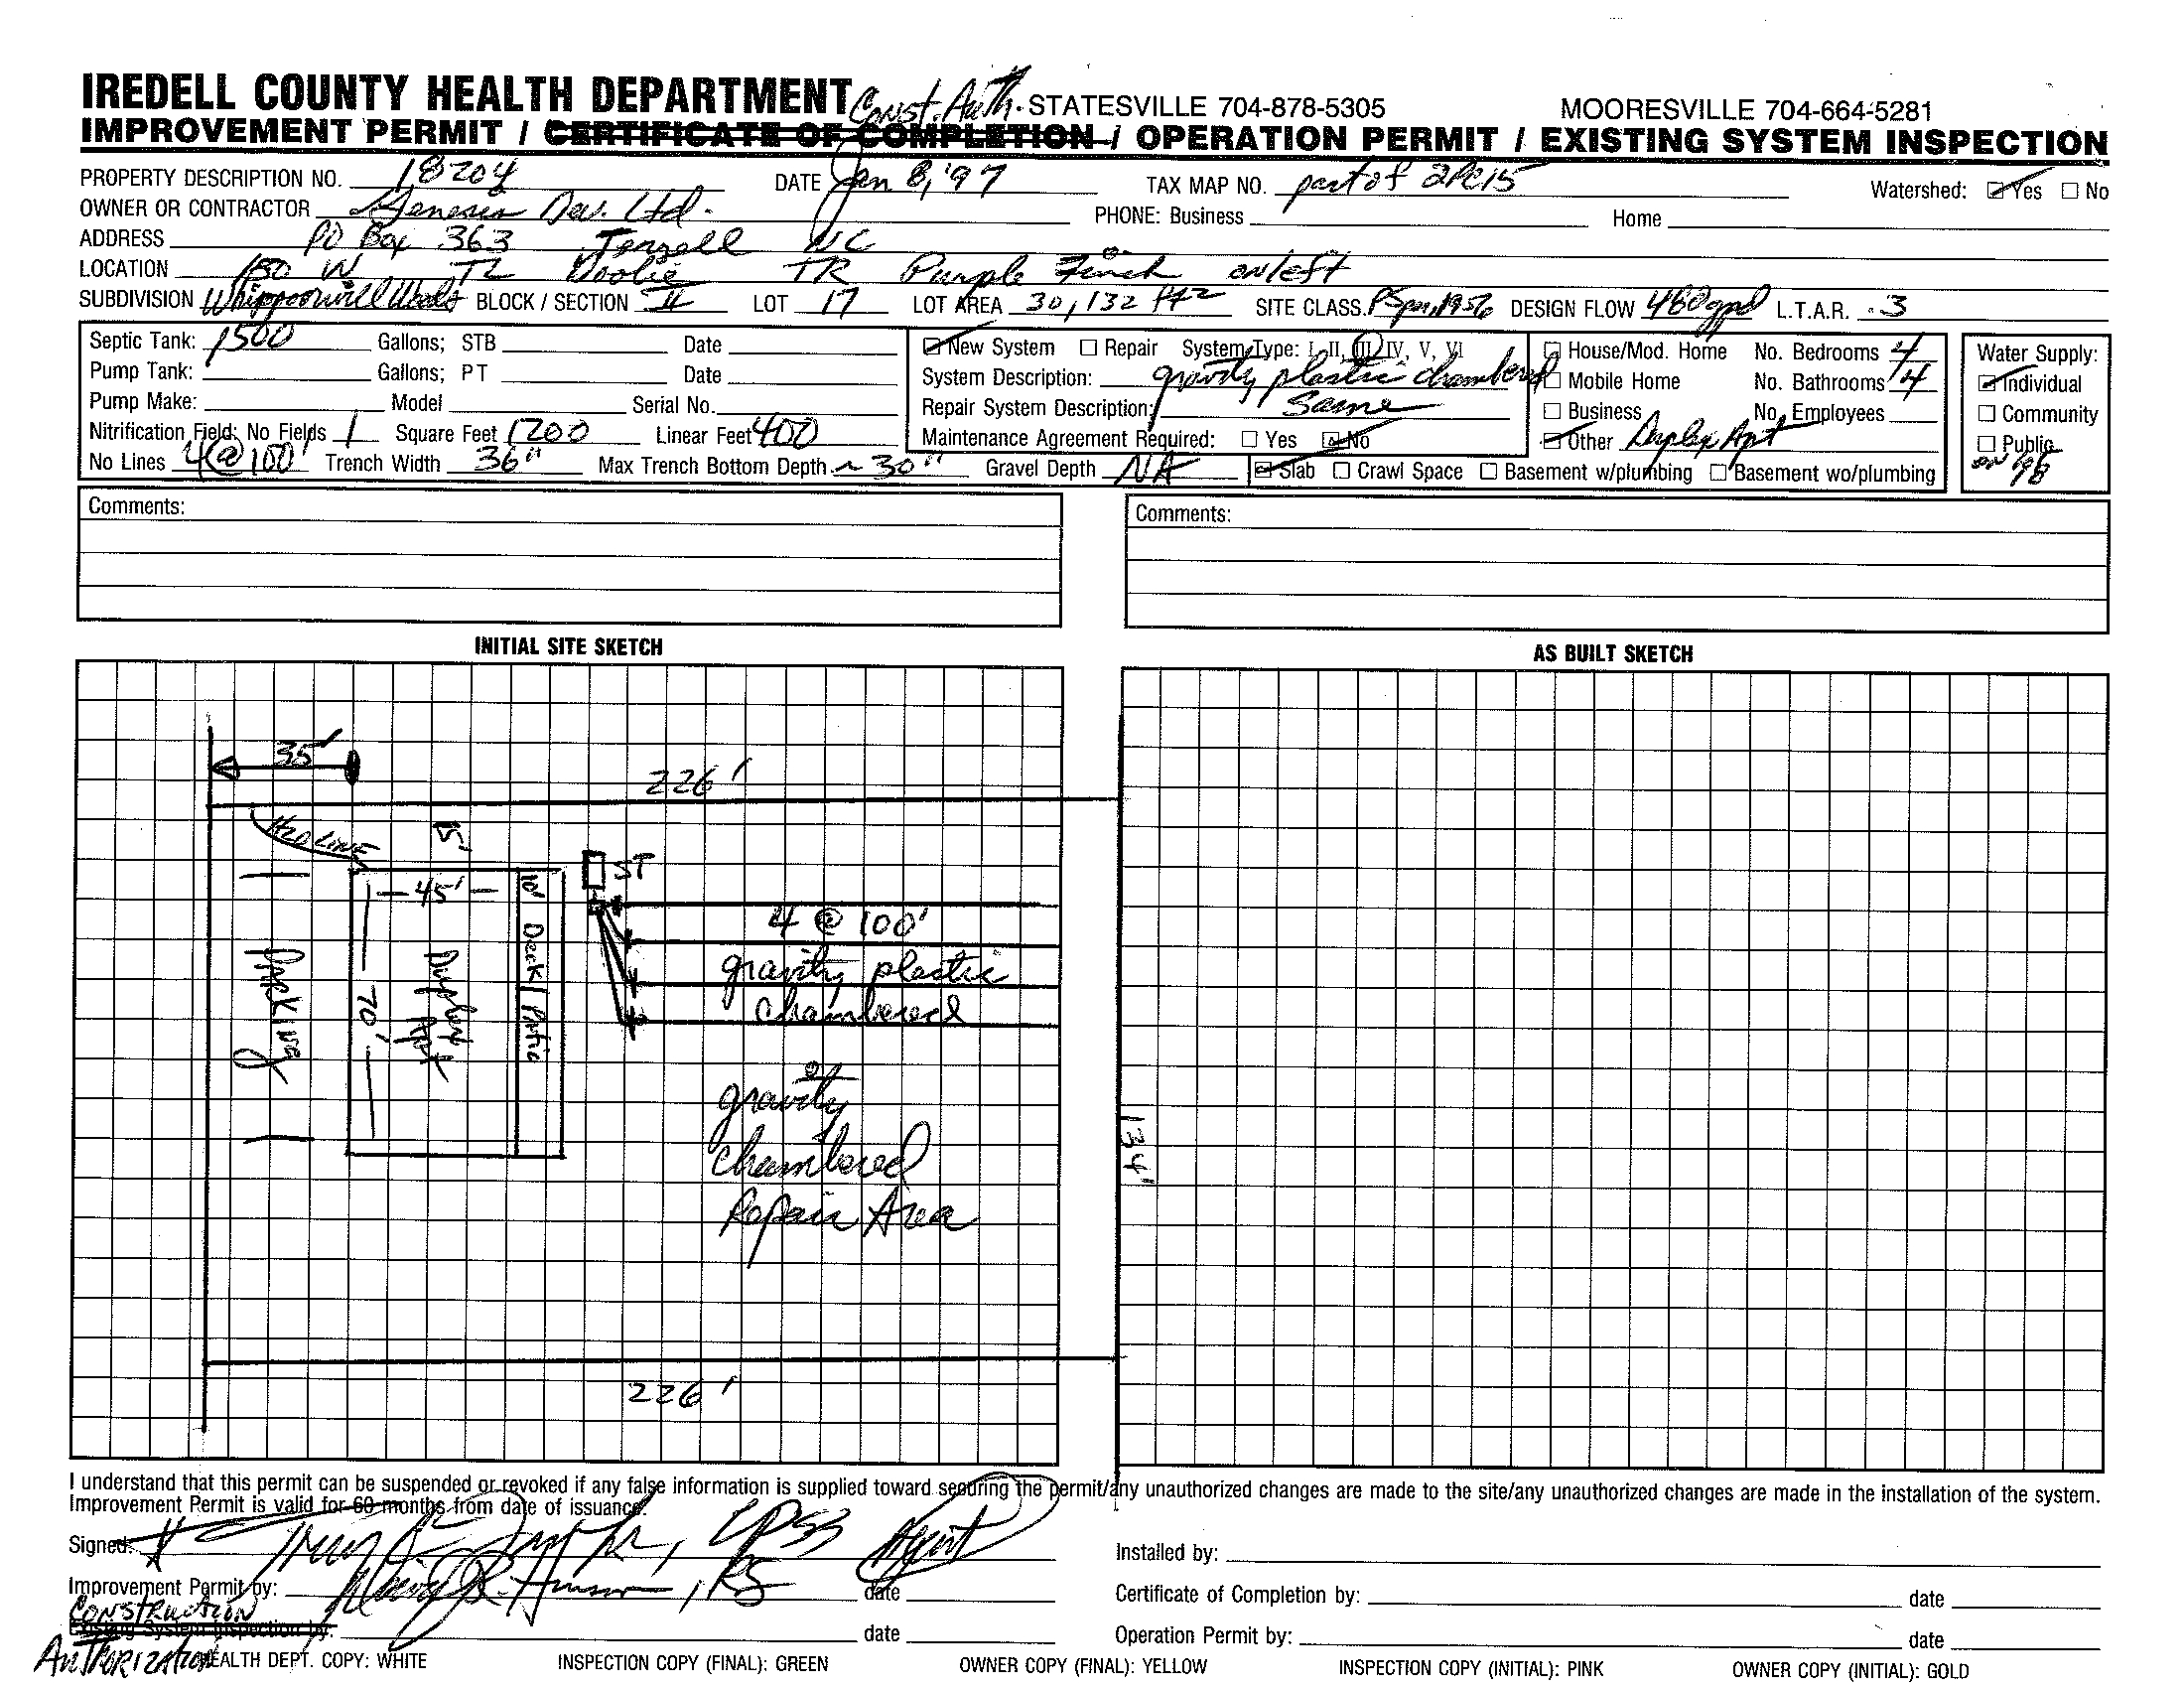 IREDELL COUNTY HEALTH DEPARTMENT Const. Auth. STATESVILLE 704-878-5305 MOORESVILLE 704-664-5281
IMPROVEMENT PERMIT / CERTIFICATE OF COMPLETION / OPERATION PERMIT / EXISTING SYSTEM INSPECTION
PROPERTY DESCRIPTION NO. 18204 DATE Jan 8, '97 TAX MAP NO. part of 2PC15 Watershed: Yes No
OWNER OR CONTRACTOR Genesis Dev. Ltd. PHONE: Business Home
ADDRESS PO Box 363 Terrell NC
LOCATION 150 W TL Doolie TR Purple Finch on left
SUBDIVISION Whippoorwill Woods BLOCK / SECTION II LOT 17 LOT AREA 30,132 ft2 SITE CLASS. PS per .1956 DESIGN FLOW 480 gpd L.T.A.R. .3
Septic Tank: 1500 Gallons; STB Date
Pump Tank: Gallons; PT Date
Pump Make: Model Serial No.
Nitrification Field: No Fields 1 Square Feet 1200 Linear Feet 400
No Lines 4 @ 100' Trench Width 36" Max Trench Bottom Depth ~ 30" Gravel Depth NA
New System Repair System Type: I, II, III, IV, V, VI
System Description: gravity plastic chambered
Repair System Description: Same
Maintenance Agreement Required: Yes No
House/Mod. Home No. Bedrooms 4
Mobile Home No. Bathrooms 4
Business No. Employees
Other Duplex Apt
Slab Crawl Space Basement w/plumbing Basement wo/plumbing
Water Supply:
Individual
Community
Public
Comments:
Comments:
INITIAL SITE SKETCH
AS BUILT SKETCH
35'
226'
15'
ST
45'
10' Deck / Patio
4 @ 100'
gravity plastic
chambered
Parking
70'
Duplex
Apt
gravity
chambered
Repair Area
134'
226'
I understand that this permit can be suspended or revoked if any false information is supplied toward securing the permit/any unauthorized changes are made to the site/any unauthorized changes are made in the installation of the system.
Improvement Permit is valid for 60 months from date of issuance.
Signed: X Agent
Improvement Permit by: , RS date
CONSTRUCTION
Existing System Inspection by: date
AUTHORIZATION
Installed by:
Certificate of Completion by: date
Operation Permit by: date
HEALTH DEPT. COPY: WHITE INSPECTION COPY (FINAL): GREEN OWNER COPY (FINAL): YELLOW INSPECTION COPY (INITIAL): PINK OWNER COPY (INITIAL): GOLD